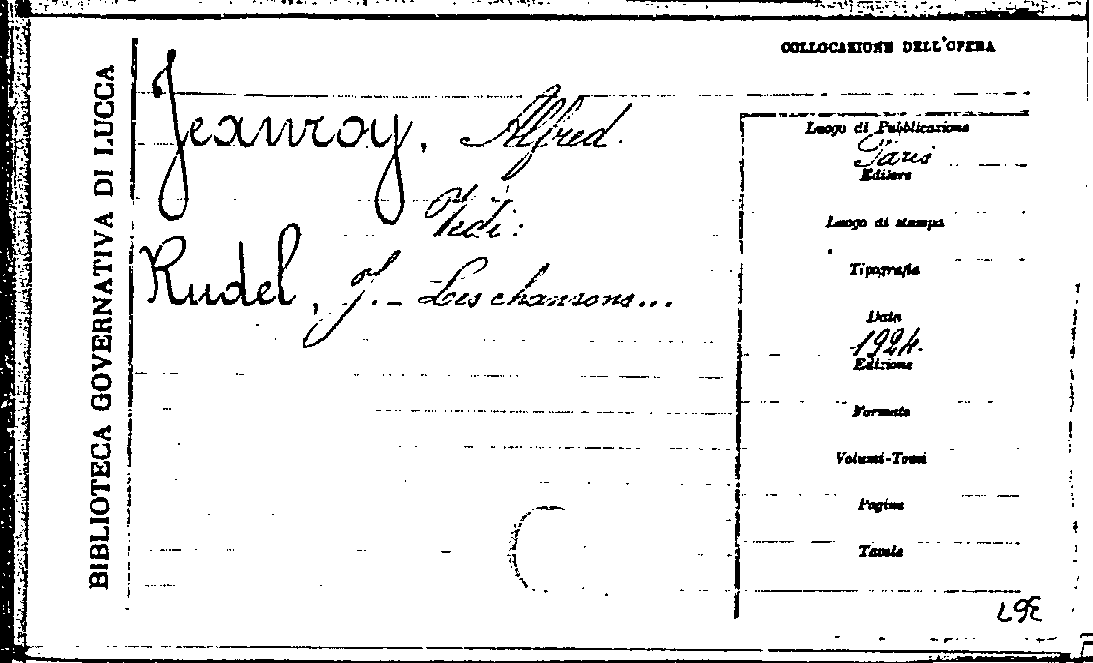 COLLOCAZIONE DELL'OPERA
BIBLIOTECA GOVERNATIVA DI LUCCA
Jeanroy, Alfred.
Vedi:
Rudel, J. - Les chansons...
Luogo di Pubblicazione
Paris
Editore
Luogo di stampa
Tipografia
Data
1924.
Edizione
Formato
Volumi-Tomi
Pagine
Tavole